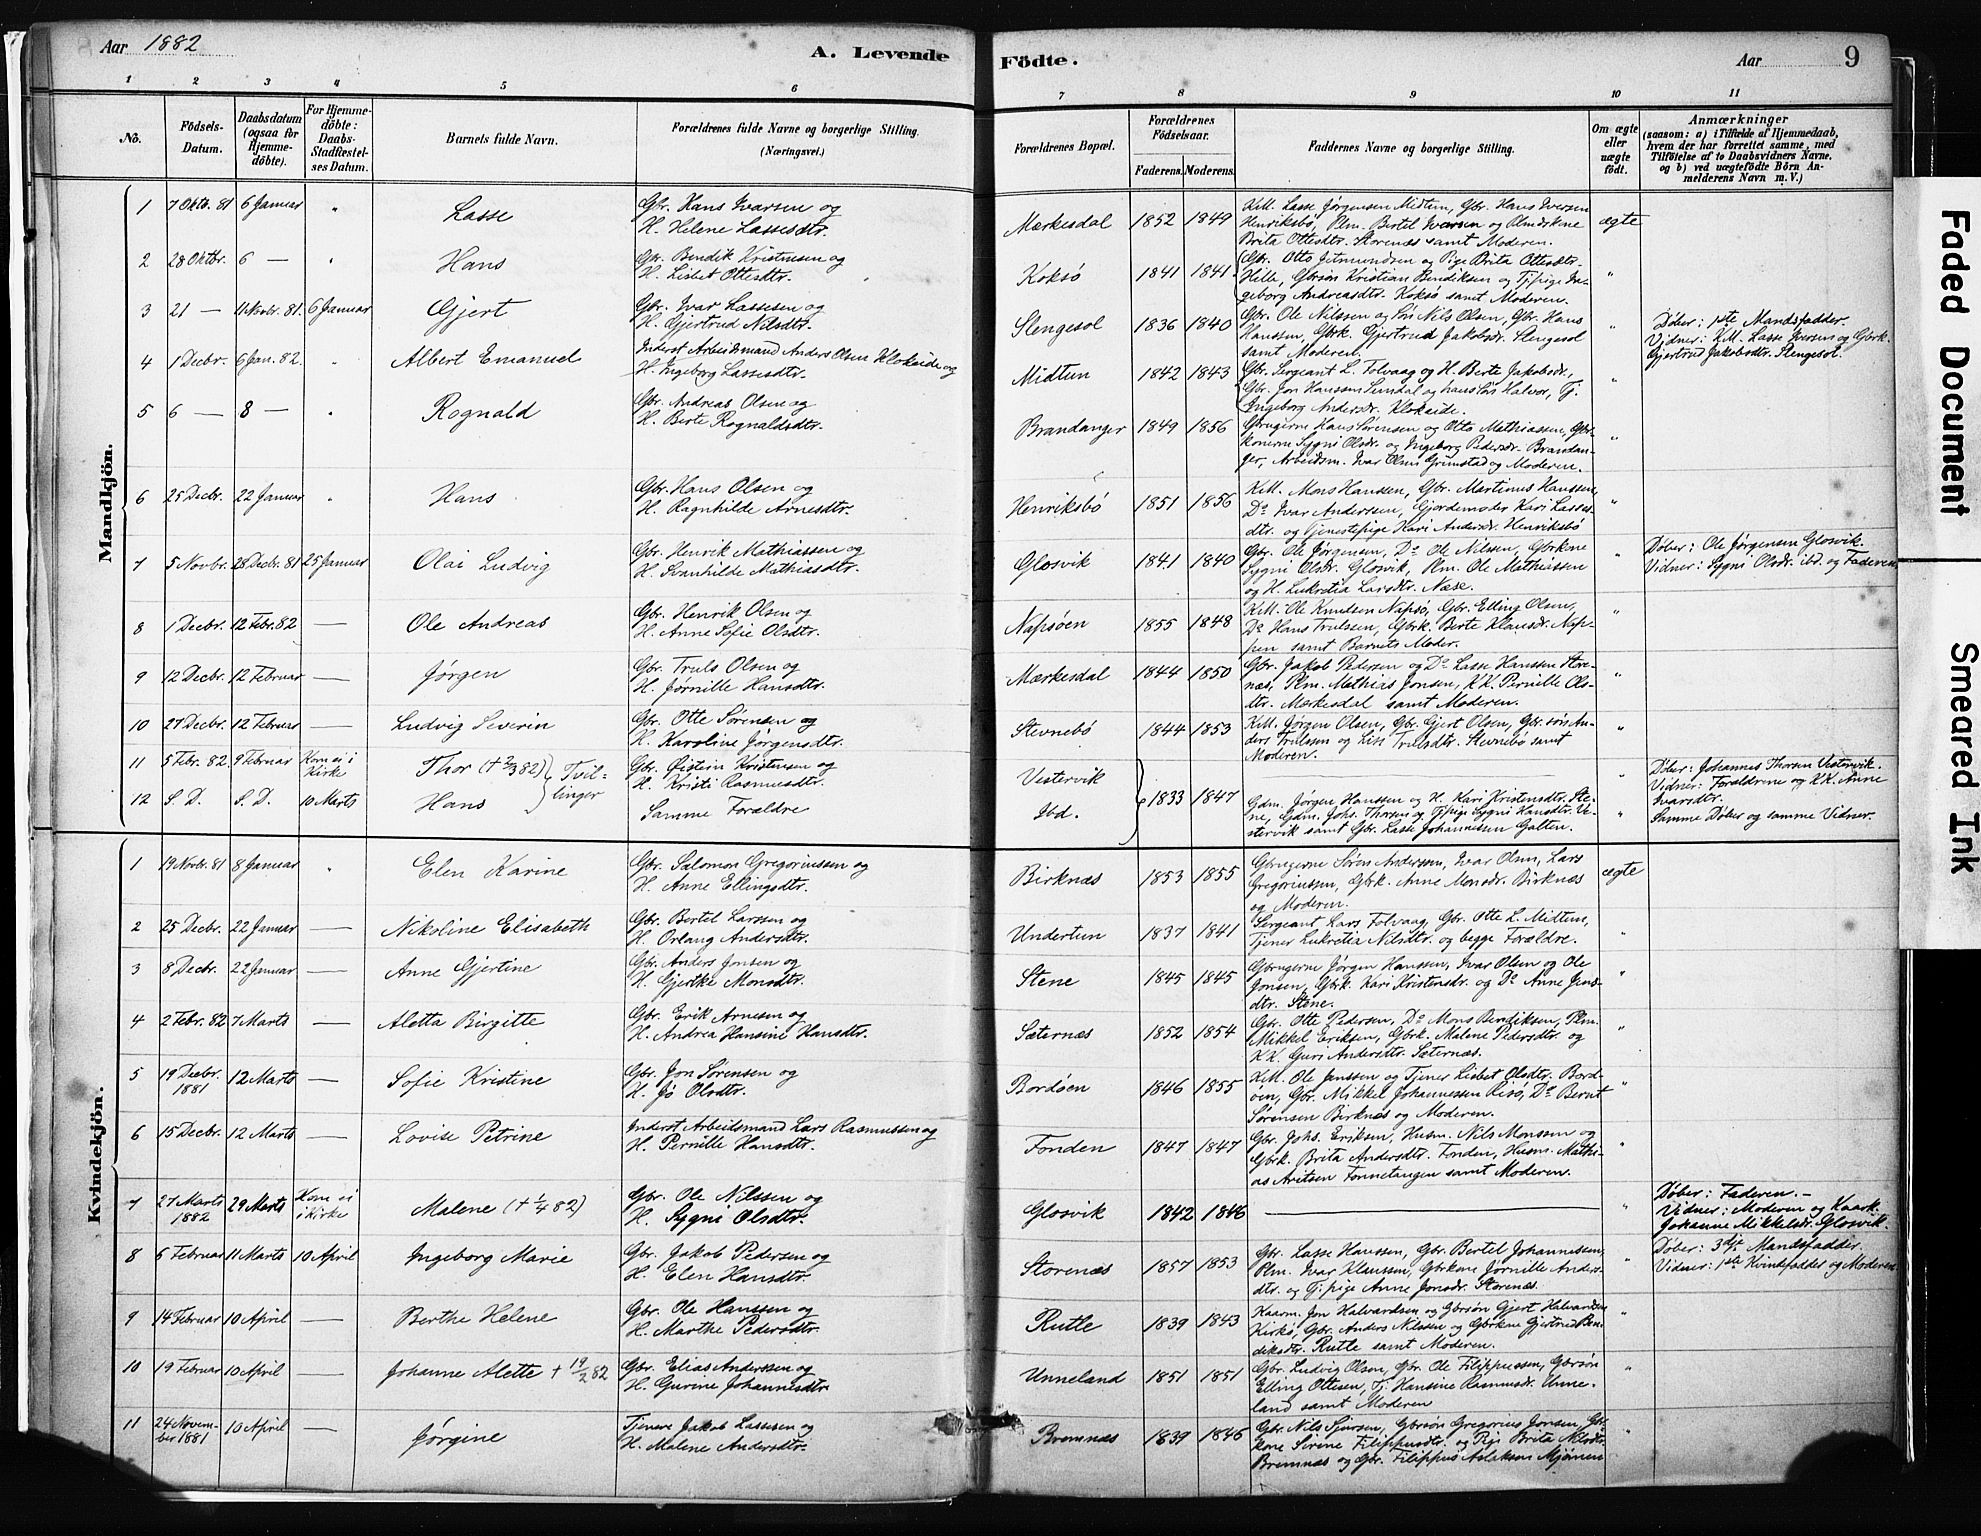 Aar 1882
A. Levende
Födte.
Aar
9
1 2 3 4 5 6 7 8 9 10 11
No.
Födsels-Datum.
Daabsdatum (ogsaa for Hjemme-döbte).
For Hjemme-döbte: Daabs-Stadfæstel-ses Datum.
Barnets fulde Navn.
Forældrenes fulde Navne og borgerlige Stilling. (Næringsvei.)
Forældrenes Bopæl.
Forældrenes Födselsaar.
Faderens. Moderens.
Faddernes Navne og borgerlige Stilling.
Om ægte eller uægte födt.
Anmærkninger (saasom: a) i Tilfælde af Hjemmedaab, hvem der har forrettet samme, med Tilföielse af to Daabsvidners Navne, og b) ved uægtefödte Börn An-melderens Navn m. V.)
Mandkjön.
1 7 Oktb. 81 6 Januar " Lasse Gbr. Hans Ivarsen og
H. Helene Lassesdtr.
Mærkesdal 1852 1849 K.M. Lasse Jørgensen Midtun, Gbr. Hans Iversen
Henriksbö, Plm. Bertel Ivarsen og
Brita Ottesdtr. Storenæs samt Moderen.
ægte
2 28 Oktbr. 6 — " Hans Gbr. Bendik Kristensen og
H. Lisbet Ottesdtr.
Koksö 1841 1841 Gbr. Otto Jetmundsen og Pige Brita Ottesdtr.
Hille, Gbrsön Kristian Bendiksen og Tj.pige In-
geborg Andreasdtr. Koksö samt Moderen.
"
3 21 — 11 Novbr. 81. 6 Januar Gjert Gbr. Ivar Lassesen og
H. Gjertrud Nilsdtr.
Slengesol 1836 1840 Gbr. Ole Nilssen og Sön Nils Olsen, Gbr. Hans
Hanssen, Gbrk. Gjertrud Jakobsdr. Slengesol
samt Moderen.
" Døber: 1ste Mandsfadder.
Vidner: K.M. Lasse Iversen og Gbrk.
Gjertrud Jakobsdtr. Slengesol.
4 1 Decbr. 6 Jan. 82. " Albert Emanuel Inderst Arbeidsmand Anders Olsen Klokeide og
H. Ingeborg Lassesdtr.
Midtun 1842 1843 Gbr. Sergeant L. Folvaag og H. Berte Jakobsdr.,
Gbr. Jon Hanssen og hans Sön Halvor, Tj.
Ingeborg Andersdr. Klokeide.
"
5 6 — 8 — " Rognald Gbr. Andreas Olsen og
H. Berte Rognaldsdtr.
Brandanger 1849 1856 Gbrugerne Hans Sørensen og Otto Mathiassen, Gbr-
konerne Sygni Olsdr. og Ingeborg Pedersdr. Brandan-
ger, Arbeidsm. Ivar Olsen Grimstad og Moderen.
"
6 25 Decbr. 22 Januar " Hans Gbr. Hans Olsen og
H. Ragnhilde Arnesdtr.
Henriksbö 1851 1856 K.M. Mons Hanssen, Gbr. Martinus Hanssen,
Do Ivar Anderssen, Gjordemoder Kari Lasses-
dtr. og Tjenestepige Kari Andersdr. Henriksbö
"
7 5 Novbr. 28 Decbr. 81 25 Januar Olai Ludvig Gbr. Henrik Mathiassen og
H. Svanhilde Mathiasdtr.
Glosvik 1841 1840 Gbr. Ole Jørgensen, Do Ole Nilssen, Gbrkone
Sygni Olsdr. Glosvik, Plm. Ole Mathiassen
og H. Lukretia Larsdtr. Næse.
" Døber: Ole Jørgensen Glosvik.
Vidner: Sygni Olsdr. ibd. og Faderen.
8 1 Decbr. 12 Febr. 82 — Ole Andreas Gbr. Henrik Olsen og
H. Anne Sofie Olsdtr.
Napsöen 1855 1848 K.M. Ole Knudsen Napsö, Gbr. Elling Olsen,
Do Hans Trulssen, Gbrk. Berte Klausdr. Nap-
pen samt Barnets Moder.
"
9 12 Decbr. 12 Februar — Jørgen Gbr. Truls Olsen og
H. Jørnille Hansdtr.
Mærkesdal 1844 1850 Gbr. Jakob Pedersen og Do Lasse Hanssen Store-
næs, Plm. Mathias Jonsen, K.K. Pernille Ols-
dtr. Mærkesdal samt Moderen.
"
10 27 Decbr. 12 Februar — Ludvig Severin Gbr. Otte Sørensen og
H. Karoline Jørgensdtr.
Stevnebö 1844 1853 K.M. Jørgen Olsen, Gbr. Gjert Olsen, Gbr. sön An-
ders Trulssen og Liss Trulsdtr. Stevnebö samt
Moderen.
"
11 5 Febr. 82. 9 Februar Kom ei i Kirke Thor (+ 2/3 82) Tvil-linger Gbr. Øistein Kristensen og
H. Kristi Rasmusdtr.
Vestervik — " Døber: Johannes Thorsen Vestervik.
Vidner: Forældrene og K.K. Anne
Ivarsdtr.
12 S. D. S. D. 10 Marts Hans Samme Forældre
Ibd. 1833 1847 Gdm. Jørgen Hanssen og H. Kari Kristensdtr. Ste-
ne, Gdm. Johs. Thorsen og Tj.pige Sygni Hansdtr. Ve-
stervik samt Gbr. Lasse Johannessen Galten.
" Samme Døber og samme Vidner.
Kvindekjön.
1 19 Novbr. 81 8 Januar " Elen Karine Gbr. Salomon Gregoriussen og
H. Anne Ellingsdtr.
Birknæs 1853 1855 Gbrugerne Søren Anderssen, Ivar Olsen, Lars
Gregoriussen, Gbrk. Anne Monsdr. Birknæs
og Moderen.
ægte
2 25 Decbr. 22 Januar — Nikoline Elisabeth Gbr. Bertel Larssen og
H. Orlaug Andersdtr.
Undertun 1837 1841 Sergeant Lars Folvaag, Gbr. Otte L. Midtun,
Tjener Lukretia Nilsdtr. og begge Forældre.
"
3 8 Decbr. 22 Januar — Anne Gjertine Gbr. Anders Jonsen og
H. Gjertke Monsdtr.
Stene 1845 1845 Gbrugerne Jørgen Hanssen, Ivar Olsen og Ole
Jonsen, Gbrk. Kari Kristensdr. og Do Anne Jens-
dtr. Stene.
"
4 2 Febr. 82 7 Marts — Aletta Birgitte Gbr. Erik Arnesen og
H. Andrea Hansine Hansdtr.
Sæternæs 1852 1854 Gbr. Otte Pedersen, Do Mons Bendiksen, Plm.
Mikkel Eriksen, Gbrk. Malene Pedersdtr. og
K.K. Guri Andersdtr. Sæternæs.
"
5 19 Decbr. 1881 12 Marts — Sofie Kristine Gbr. Jon Sørensen og
H. Jö Olsdtr.
Bordöen 1846 1855 K.M. Ole Janssen og Tjener Lisbet Olsdtr. Bord-
öen, Gbr. Mikkel Johannessen Risö, Do Bernt
Sørensen Birknæs og Moderen.
"
6 15 Decbr. 12 Marts — Lovise Petrine Inderst Arbeidsmand Lars Rasmussen og
H. Pernille Hansdtr.
Fonden 1847 1847 Gbr. Johs. Eriksen, Husm. Nils Monssen og
Gbrk. Brita Andersdtr. Fonden, Husm. Mathi-
as Aritsen Fonnetangen samt Moderen.
"
7 27 Marts 1882 29 Marts Kom ei i Kirke Malene (+ 1/4 82) Gbr. Ole Nilssen og
H. Sygni Olsdtr.
Glosvik 1842 1846 — " Døber: Faderen. –
Vidner: Moderen og Kaark.
Johanne Mikkelsdr. Glosvik.
8 6 Februar 11 Marts 10 April Ingeborg Marie Gbr. Jakob Pedersen og
H. Elen Hansdtr.
Storenæs 1857 1853 Gbr. Lasse Hanssen, Gbr. Bertel Johannessen,
Plm. Ivar Klaussen, Gbrkone Jørnille Anders-
dtr. og Tj.pige Anne Jonsdr. Storenæs.
" Døber: 3dje Mandsfadder.
Vidner: 1ste Kvindfadder og Moderen.
9 14 Februar 10 April — Berthe Helene Gbr. Ole Hanssen og
H. Marthe Pedersdtr.
Rutle 1839 1843 Kaarm. Jon Halvardsen og Gbrsön Gjert Halvardsen
Kirkö, Gbr. Anders Nilssen og Gbrkone Gjertrud Ben-
diksdtr. Rutle samt Moderen.
"
10 19 Februar 10 April — Johanne Alette + 19/2 82 Gbr. Elias Anderssen og
H. Gurine Johannesdtr.
Unneland 1851 1851 Gbr. Ludvig Olsen, Gbr. Ole Filippussen, Gbrsön
Elling Ottesen, Tj. Hansine Rasmusdr. Unne-
land samt Moderen
"
11 24 Novem-ber 1881 10 April Jørgine Tjener Jakob Lassesen og
H. Malene Andersdtr.
Bremnæs 1839 1846 Gbr. Nils Sjursen, Gbrsön Gregorius Jonsen, Gbr-
kone Sirine Filippusdtr. og Pige Brita Nilsdtr.
Bremnæs og Gbr. Filippus Aslaksen Mjømen
"
Faded Document
Smeared Ink